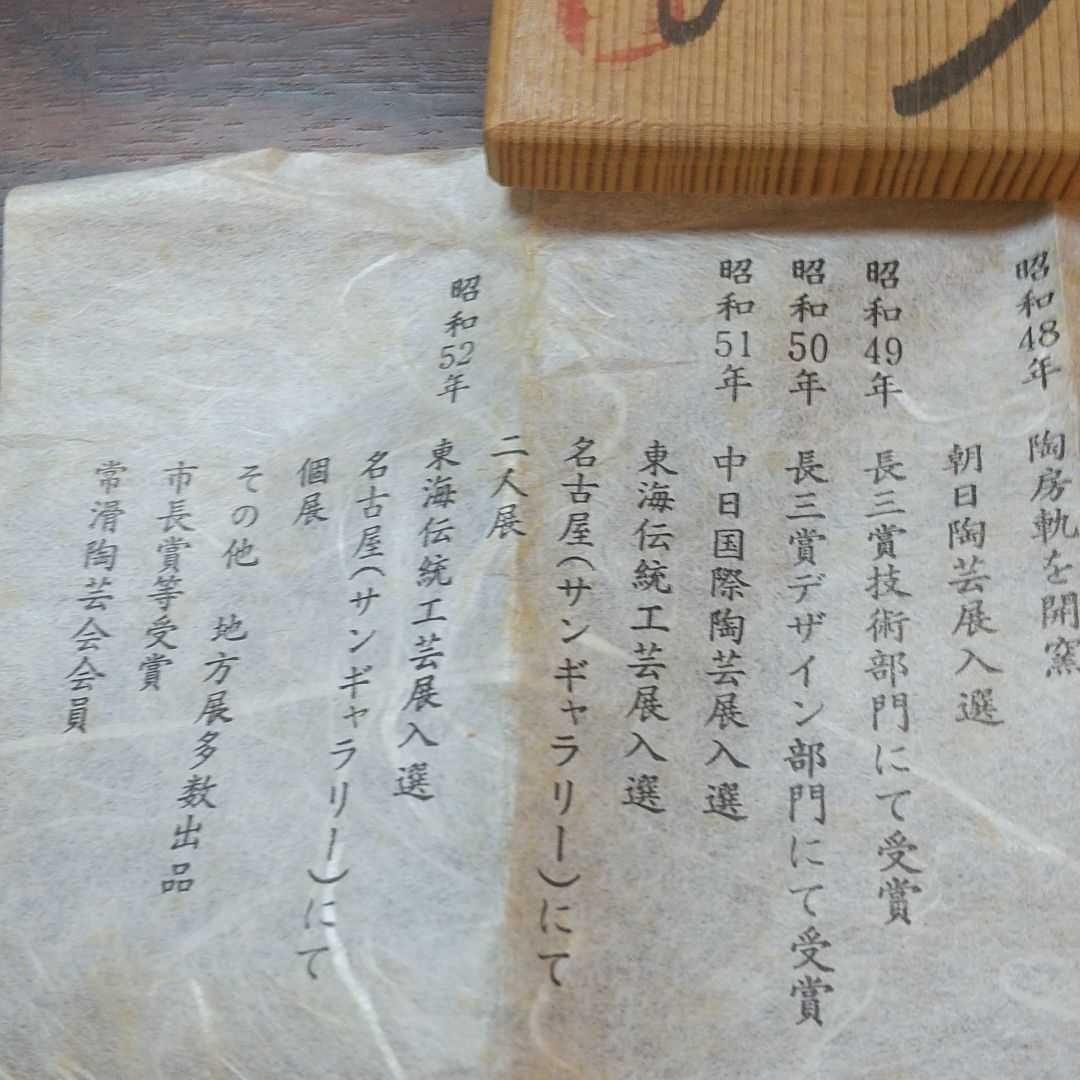 昭和48年 陶房軌を開窯
朝日陶芸展入選
昭和49年 長三賞技術部門にて受賞
昭和50年 長三賞デザイン部門にて受賞
昭和51年 中日国際陶芸展入選
東海伝統工芸展入選
名古屋(サンギャラリー)にて
二人展
昭和52年 東海伝統工芸展入選
名古屋(サンギャラリー)にて
個展
その他 地方展多数出品
市長賞等受賞
常滑陶芸会会員